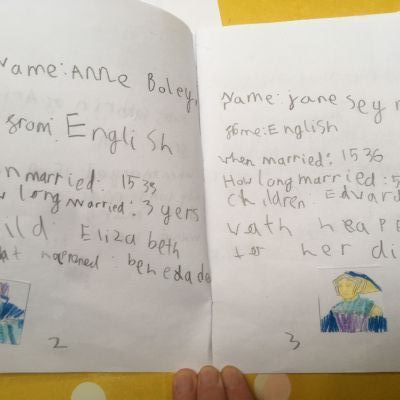 Name: Anne Boley
from: English
married: 1533
long married: 3 yers
ild: Eliza beth
at happened: behedade
2
Name: jane Sey m
frome: English
when married: 1536
How long married: 5
Children: Edward
wath heape
to her di
3